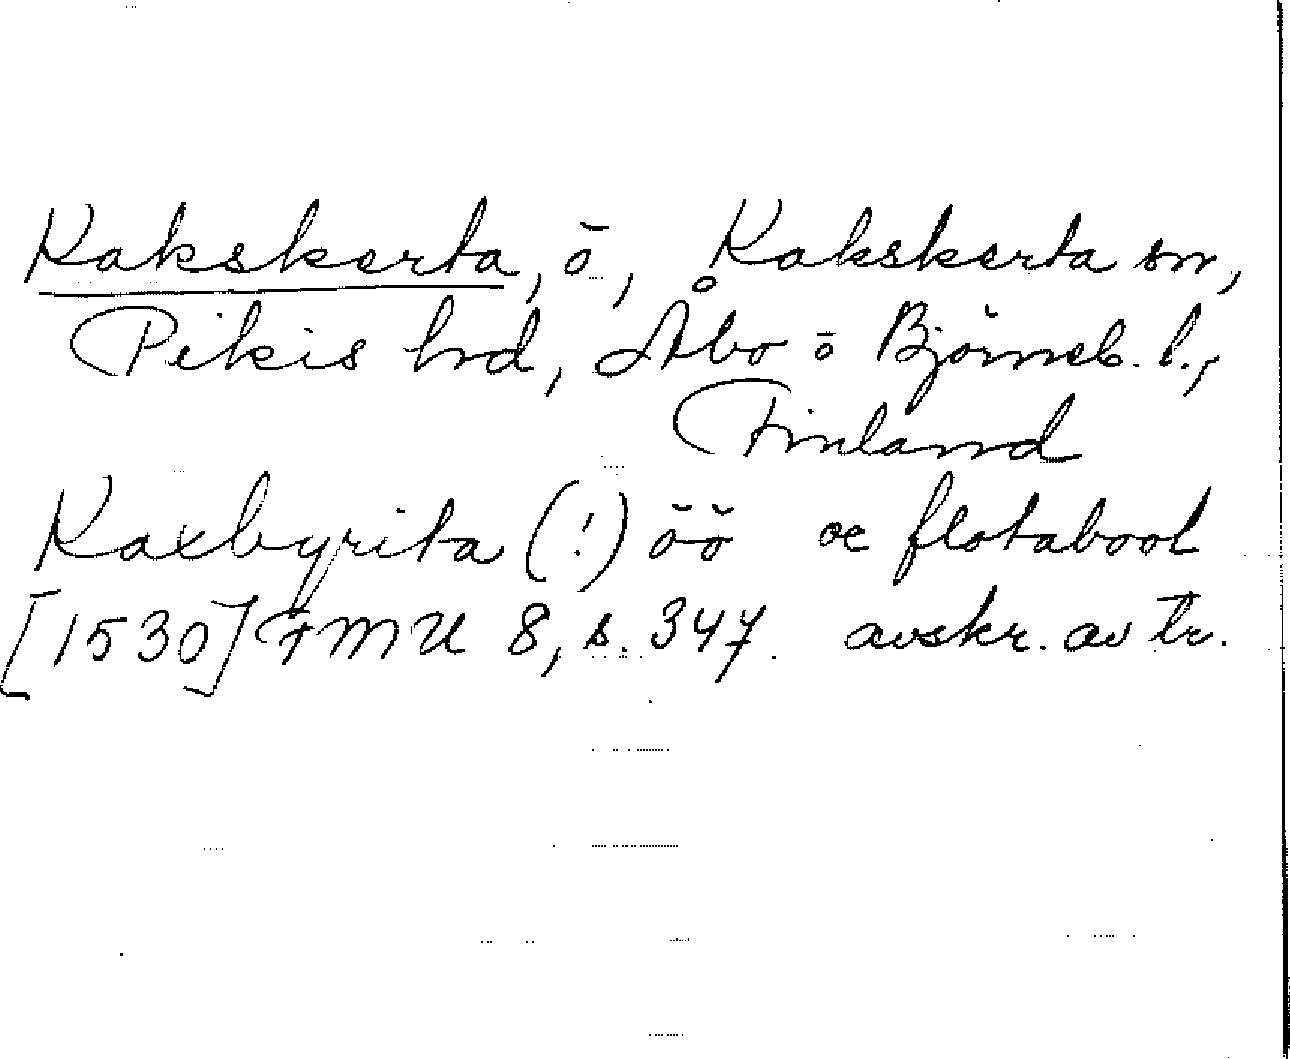 Kakskerta, ö, Kakskerta sn,
Pikis hrd, Åbo o Björneb. l.,
Finland
Kaxbyrita (!) öö oc flotaboot
[1530] FMU 8, s. 347. avskr. av tr.